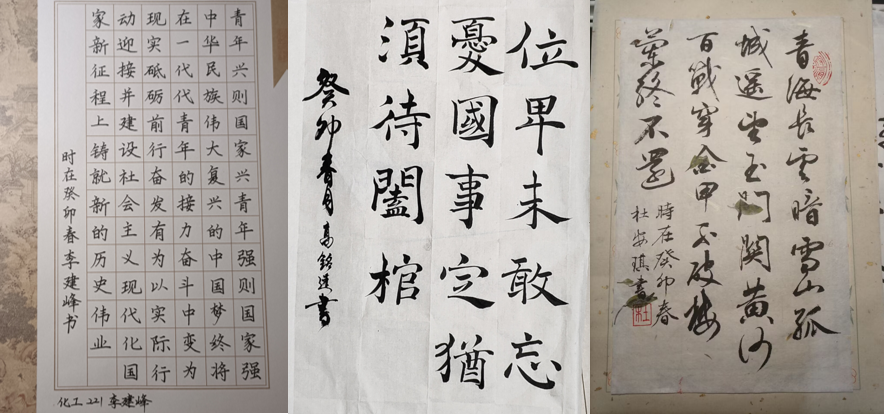 青年兴则国家兴青年强则国家强
中华民族伟大复兴的中国梦终将
在一代代青年的接力奋斗中变为
现实砥砺前行奋发有为以实际行
动迎接并建设社会主义现代化国
家新征程上铸就新的历史伟业
时在癸卯春李建峰书
化工221 李建峰
位卑未敢忘
憂國事定猶
須待闔棺
癸卯春月高銘書
青海长雲暗雪山孤
城遥望玉門関黄沙
百戰穿金甲不破樓
蘭終不還
時在癸卯春
杜安琪書
杜